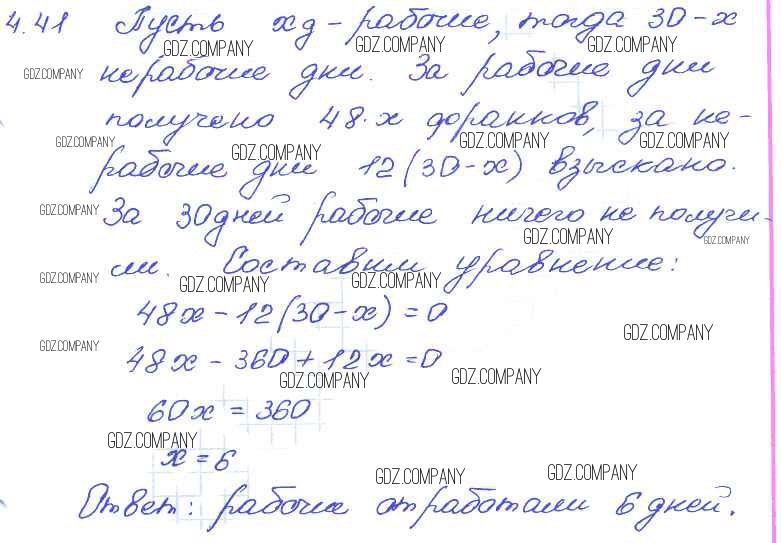 4.41 Пусть x д - рабочие, тогда 30-x
GDZ.COMPANY GDZ.COMPANY GDZ.COMPANY
GDZ.COMPANY нерабочие дни. За рабочие дни
получено 48·x форанков, за не-
GDZ.COMPANY GDZ.COMPANY GDZ.COMPANY GDZ.COMPANY
рабочие дни 12(30-x) взыскано.
GDZ.COMPANY За 30 дней рабочие ничего не получи-
GDZ.COMPANY GDZ.COMPANY
ли. Составим уравнение:
GDZ.COMPANY GDZ.COMPANY GDZ.COMPANY
48x - 12(30-x) = 0
GDZ.COMPANY
GDZ.COMPANY 48x - 360 + 12x = 0
GDZ.COMPANY GDZ.COMPANY
60x = 360
GDZ.COMPANY
x = 6
GDZ.COMPANY GDZ.COMPANY
Ответ: рабочие отработали 6 дней.